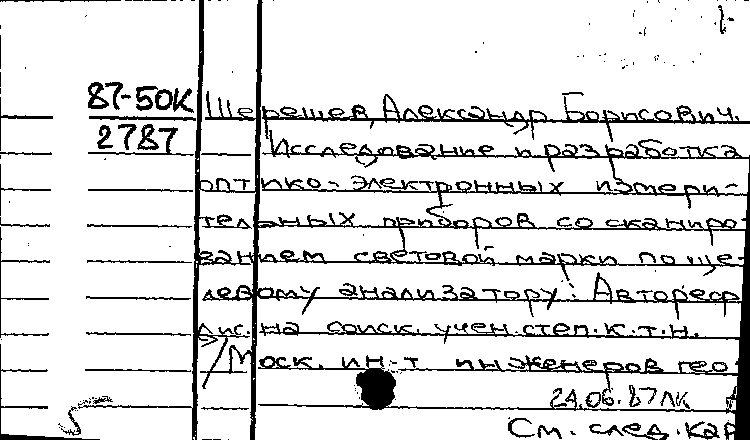 87-50К
2787
Шерешев, Александр Борисович.
Исследование и разработка
оптико-электронных измери-
тельных приборов со сканиро-
ванием световой марки по ще-
левому анализатору: Автореф
дис. на соиск. учен. степ. к.т.н.
/Моск. ин-т инженеров гео
24.06.87 ЛК
См. след. кар